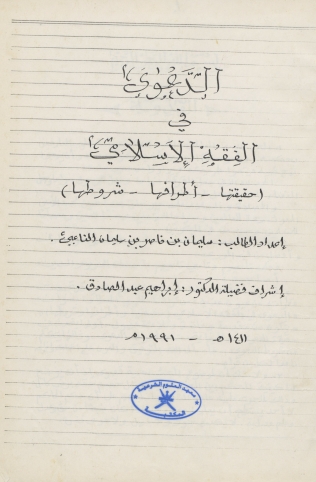 الدَّعْوَى
في
الفِقْهِ الإِسْلَامِيّ
(حقيقتها - أطرافها - شروطها)
إعداد الطالب: سليمان بن ناصر بن سليمان الناعبيّ.
إشراف فضيلة الدكتور: إبراهيم عبد الصادق.
١٤١١هـ - ١٩٩١م
معهد العلوم الشرعية
المكتبة